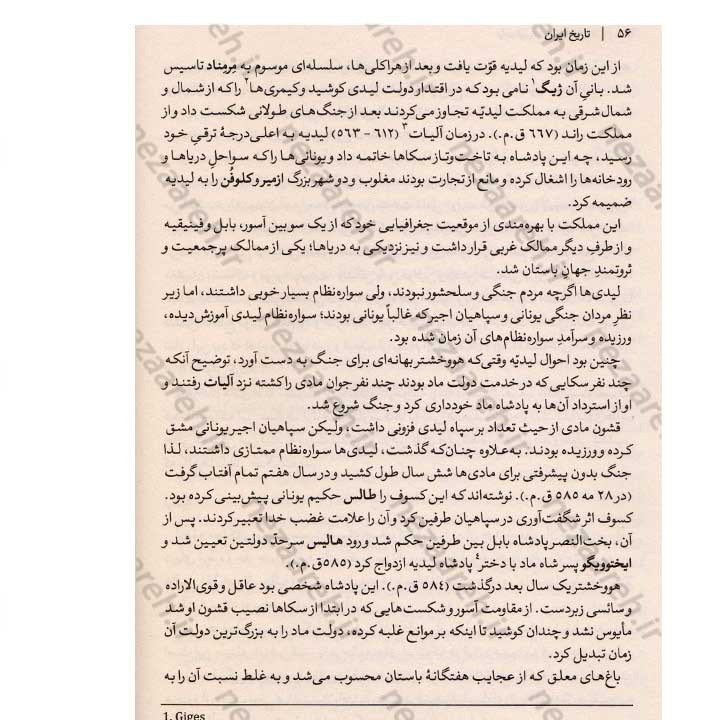 ۵۶ | تاریخ ایران
از این زمان بود که لیدیه قوّت یافت و بعد از هراکلی‌ها، سلسله‌ای موسوم به مِرمِناد تاسیس
شد. بانیِ آن ژیگ۱ نامی بود که در اقتدار دولت لیدی کوشید و کیمری‌ها۲ را که از شمال و
شمال شرقی به مملکت لیدیّه تجاوز می‌کردند بعد از جنگ‌های طولانی شکست داد و از
مملکت راند (۶۶۷ ق.م.). در زمان آلیات۳ (۶۱۲ - ۵۶۳) لیدیه به اعلی درجهٔ ترقیِ خود
رسید، چه این پادشاه به تاخت‌وتاز سکاها خاتمه داد و یونانی‌ها را که سواحل دریاها و
رودخانه‌ها را اشغال کرده و مانع از تجارت بودند مغلوب و دو شهر بزرگ ازمیر و کلوفُن را به لیدیه
ضمیمه کرد.
این مملکت با بهره‌مندی از موقعیت جغرافیایی خود که از یک سو بین آسور، بابل و فینیقیه
و از طرفِ دیگر ممالک غربی قرار داشت و نیز نزدیکی به دریاها؛ یکی از ممالک پرجمعیت و
ثروتمندِ جهانِ باستان شد.
لیدی‌ها اگرچه مردم جنگی و سلحشور نبودند، ولی سواره‌نظام بسیار خوبی داشتند، اما زیر
نظرِ مردان جنگی یونانی و سپاهیان اجیر که غالباً یونانی بودند؛ سواره‌نظام لیدی آموزش‌دیده،
ورزیده و سرآمدِ سواره‌نظام‌های آن زمان شده بود.
چنین بود احوال لیدیّه وقتی‌که هووخشتر بهانه‌ای برای جنگ به دست آورد، توضیح آنکه
چند نفر سکایی که در خدمت دولت ماد بودند چند نفر جوان مادی را کشته نزد آلیات رفتند و
او از استرداد آن‌ها به پادشاه ماد خودداری کرد و جنگ شروع شد.
قشون مادی از حیث تعداد بر سپاه لیدی فزونی داشت، ولیکن سپاهیان اجیر یونانی مشق
کرده و ورزیده بودند. به‌علاوه چنان‌که گذشت، لیدی‌ها سواره‌نظام ممتازی داشتند، لذا
جنگ بدون پیشرفتی برای مادی‌ها شش سال طول کشید و در سال هفتم تمام آفتاب گرفت
(در ۲۸ مه ۵۸۵ ق.م.). نوشته‌اند که این کسوف را طالس حکیم یونانی پیش‌بینی کرده بود.
کسوف اثر شگفت‌آوری در سپاهیان طرفین کرد و آن را علامت غضب خدا تعبیر کردند. پس از
آن، بخت‌النصر پادشاه بابل بین طرفین حکم شد و رود هالیس سرحدّ دولتین تعیین شد و
ایختوویگو پسر شاه ماد با دختر۴ پادشاه لیدیه ازدواج کرد (۵۸۵ق.م.).
هووخشتر یک سال بعد درگذشت (۵۸۴ ق.م.). این پادشاه شخصی بود عاقل و قوی‌الاراده
و سائسی زبردست. از مقاومت آسور و شکست‌هایی که در ابتدا از سکاها نصیب قشون او شد
مأیوس نشد و چندان کوشید تا اینکه بر موانع غلبه کرده، دولت ماد را به بزرگ‌ترین دولت آن
زمان تبدیل کرد.
باغ‌های معلق که از عجایب هفتگانهٔ باستان محسوب می‌شد و به غلط نسبت آن را به
1. Giges
nezaareh.ir